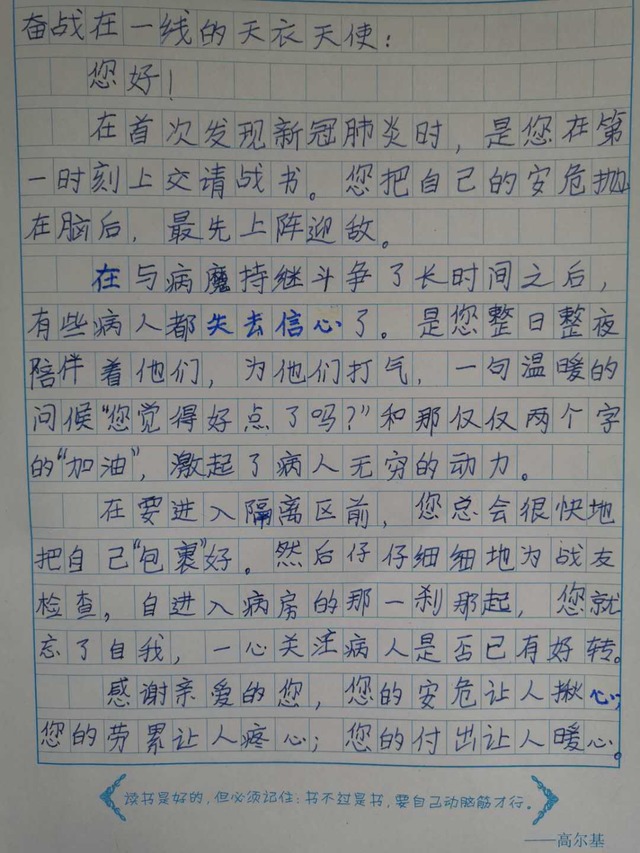 奋战在一线的天衣天使：
您好！
在首次发现新冠肺炎时，是您在第
一时刻上交请战书。您把自己的安危抛
在脑后，最先上阵迎敌。
在与病魔持继斗争了长时间之后，
有些病人都失去信心了。是您整日整夜
陪伴着他们，为他们打气，一句温暖的
问候“您觉得好点了吗？”和那仅仅两个字
的“加油”，激起了病人无穷的动力。
在要进入隔离区前，您总会很快地
把自己“包裹”好。然后仔仔细细地为战友
检查，自进入病房的那一刹那起，您就
忘了自我，一心关注病人是否已有好转。
感谢亲爱的您，您的安危让人揪心；
您的劳累让人疼心；您的付出让人暖心。
读书是好的，但必须记住：书不过是书，要自己动脑筋才行。
——高尔基